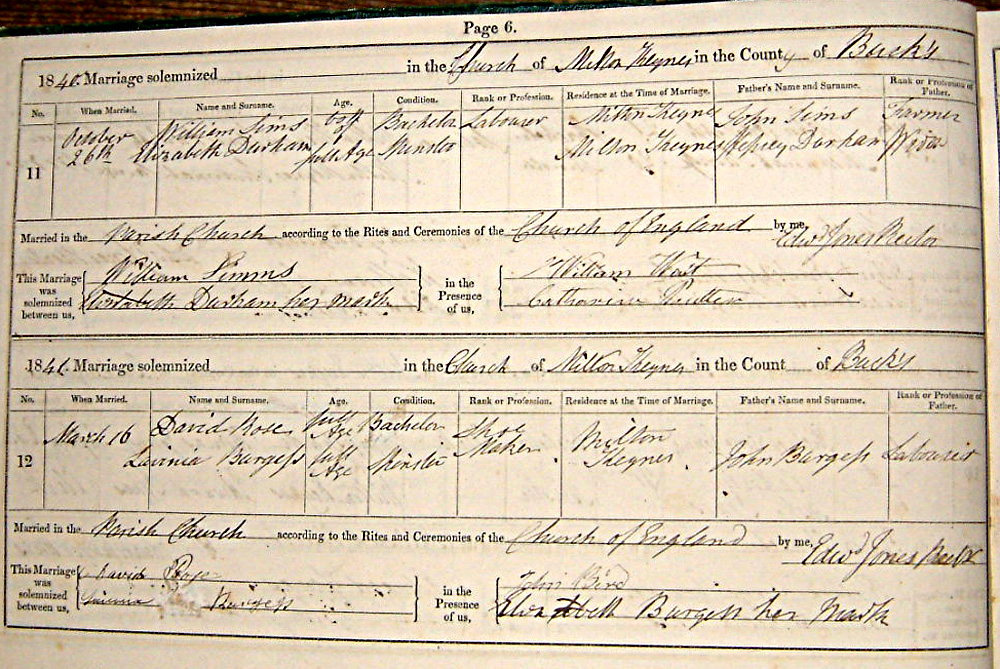 Page 6.
1840. Marriage solemnized in the Church of Milton Keynes in the County of Buck's
No. When Married. Name and Surname. Age. Condition. Rank or Profession. Residence at the Time of Marriage. Father's Name and Surname. Rank or Profession of Father.
11 October 26th William Sims both of Bachelor Labourer Milton Keynes John Sims Farmer
Elizabeth Durham full Age Minster Milton Keynes Durham
Married in the Parish Church according to the Rites and Ceremonies of the Church of England by me, Edwd Jones Rector
This Marriage was solemnized between us, William Simms in the Presence of us, William Wait
Elizabeth Durham her mark Catharine
1841. Marriage solemnized in the Church of Milton Keynes in the Count of Buck's
No. When Married. Name and Surname. Age. Condition. Rank or Profession. Residence at the Time of Marriage. Father's Name and Surname. Rank or Profession of Father.
12 March 16 David Rose full Age Bachelor Shoe Maker Milton Keynes
Lavinia Burgess full Age Minster John Burgess Labourer
Married in the Parish Church according to the Rites and Ceremonies of the Church of England by me, Edwd Jones Rector
This Marriage was solemnized between us, David Rose in the Presence of us, John Bird
Lavinia Burgess Elizabeth Burgess her Mark